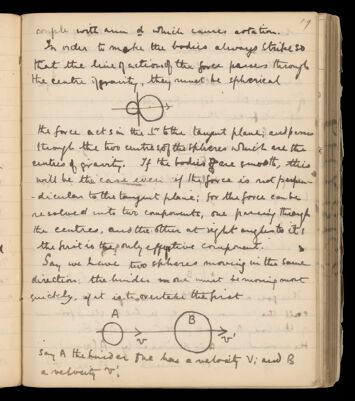 19
couple with arm d which causes rotation.
In order to make the bodies always strike so
that the line of action of the force passes through
the centre of gravity, they must be spherical
the force acts in the ⊥r to the tangent plane, and passes
through the two centres of the spheres which are the
centres of gravity. If the bodies are smooth, this
will be the case even if the force is not perpen-
dicular to the tangent plane; for the force can be
resolved into two components, one passing through
the centres, and the other at right angles to it;
the first is the only effective component.
Say we have two spheres moving in the same
direction. the hinder one must be moving more
quickly, if it is to overtake the first
A B
v v'
say A the hinder one has a velocity v; and B
a velocity v'.